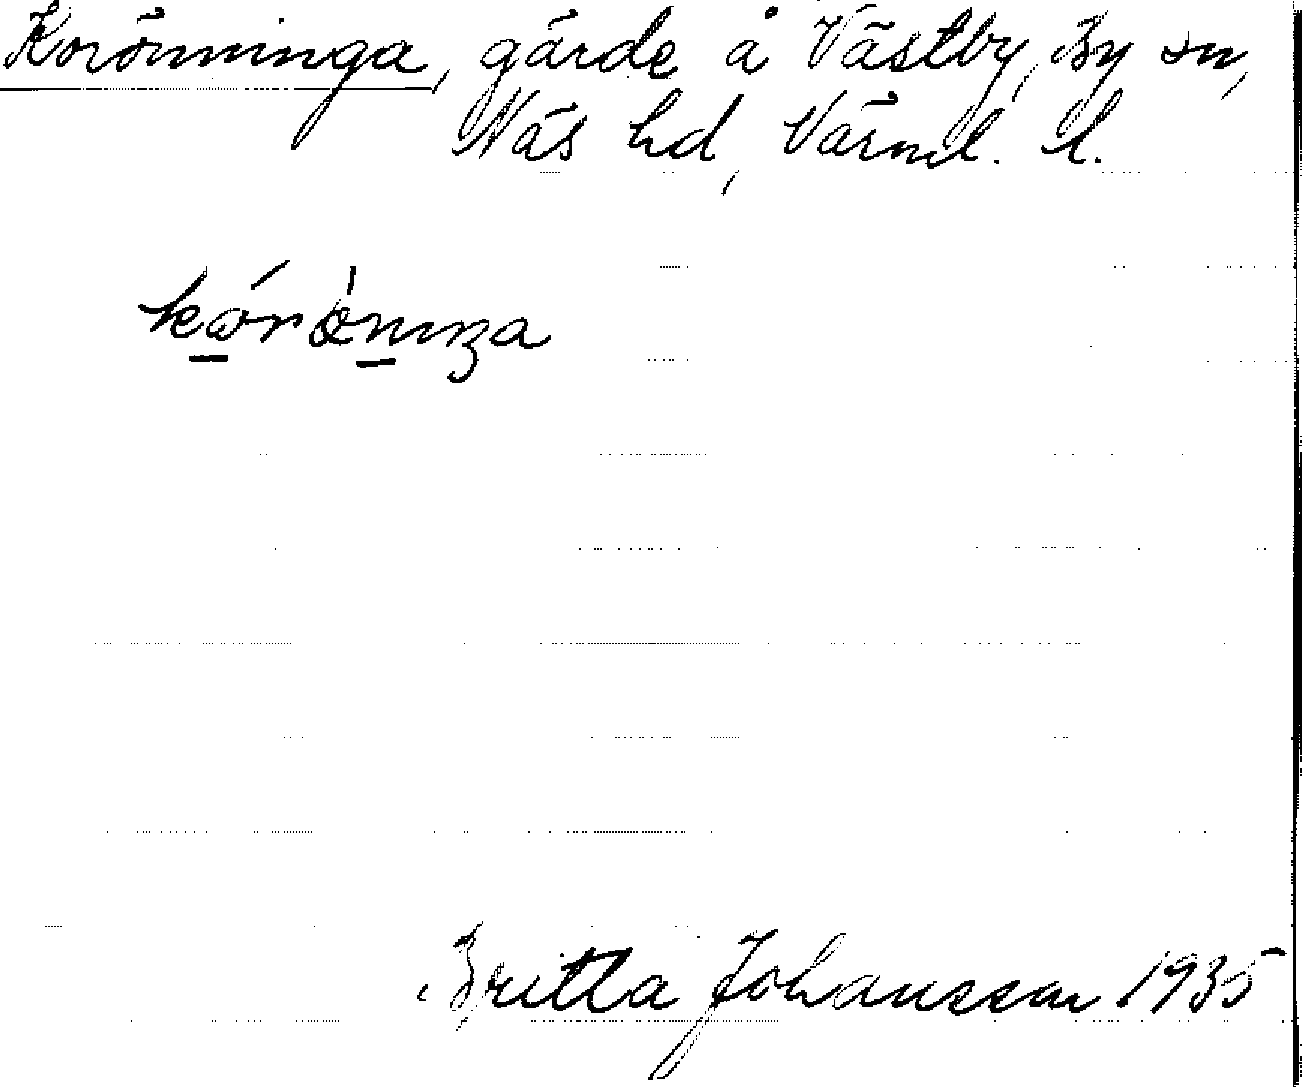 Korönninga, gärde å Västby, By sn,
Näs hd, Värml. l.
Britta Johansson 1935